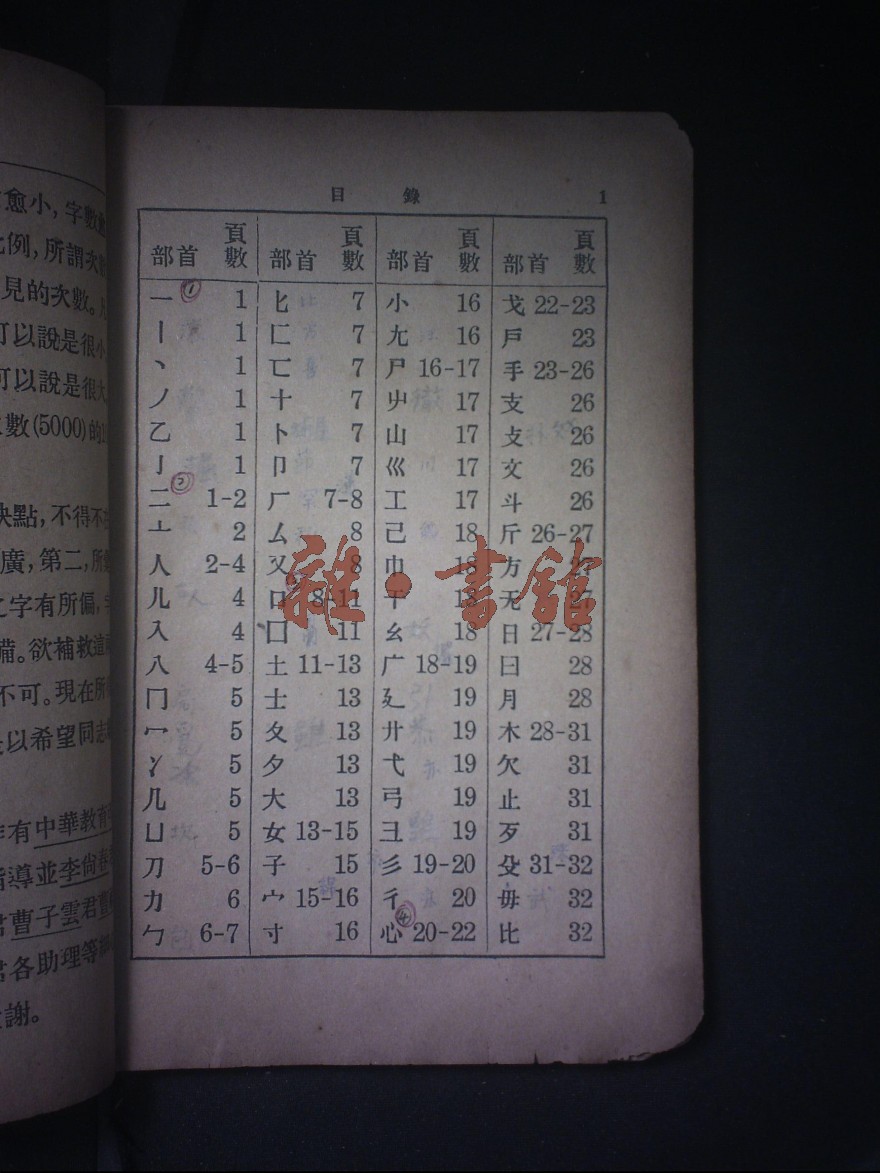 愈小,字數
比例,所謂次
見的次數。
可以說是很小
可以說是很大
數(5000)的
缺點,不得不
廣,第二,所
之字有所偏,
備。欲補救這
不可。現在所
以希望同志
有中華教育
指導並李尙春
君曹子雲君
君各助理等
謝。
目 錄 1
部首 頁數 部首 頁數 部首 頁數 部首 頁數
一 1 匕 7 小 16 戈 22-23
丨 1 匚 7 尢 16 戶 23
丶 1 匸 7 尸 16-17 手 23-26
丿 1 十 7 屮 17 支 26
乙 1 卜 7 山 17 攴 26
亅 1 卩 7 巛 17 文 26
二 1-2 厂 7-8 工 17 斗 26
亠 2 厶 8 己 18 斤 26-27
人 2-4 又 8 巾 18 方 27
儿 4 口 8-11 干 18 无 27
入 4 囗 11 幺 18 日 27-28
八 4-5 土 11-13 广 18-19 曰 28
冂 5 士 13 廴 19 月 28
冖 5 夊 13 廾 19 木 28-31
冫 5 夕 13 弋 19 欠 31
几 5 大 13 弓 19 止 31
凵 5 女 13-15 彐 19 歹 31
刀 5-6 子 15 彡 19-20 殳 31-32
力 6 宀 15-16 彳 20 毋 32
勹 6-7 寸 16 心 20-22 比 32
雜·書館